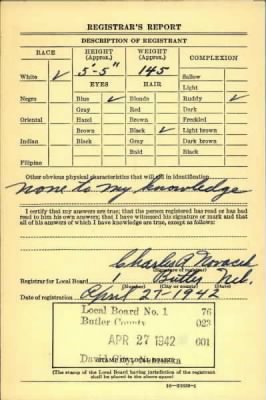 REGISTRAR'S REPORT
DESCRIPTION OF REGISTRANT
RACE HEIGHT (Approx.) WEIGHT (Approx.) COMPLEXION
White ✓ 5'-5" 145 Sallow
EYES HAIR Light
Negro Blue ✓ Blonde Ruddy ✓
Gray Red Dark
Oriental Hazel Brown Freckled
Brown Black ✓ Light brown
Indian Black Gray Dark brown
Bald Black
Filipino
Other obvious physical characteristics that will aid in identification
none to my knowledge
I certify that my answers are true; that the person registered has read or has had
read to him his own answers; that I have witnessed his signature or mark and that
all of his answers of which I have knowledge are true, except as follows:
Charles R Novacek
(Signature of registrar)
Registrar for Local Board 1 Butler Neb.
(Number) (City or county)
Date of registration April 27-1942
Local Board No. 1 76
Butler County 023
APR 27 1942 001
David City, Nebraska
(STAMP OF LOCAL BOARD)
(The stamp of the Local Board having jurisdiction of the registrant
shall be placed in the above space)